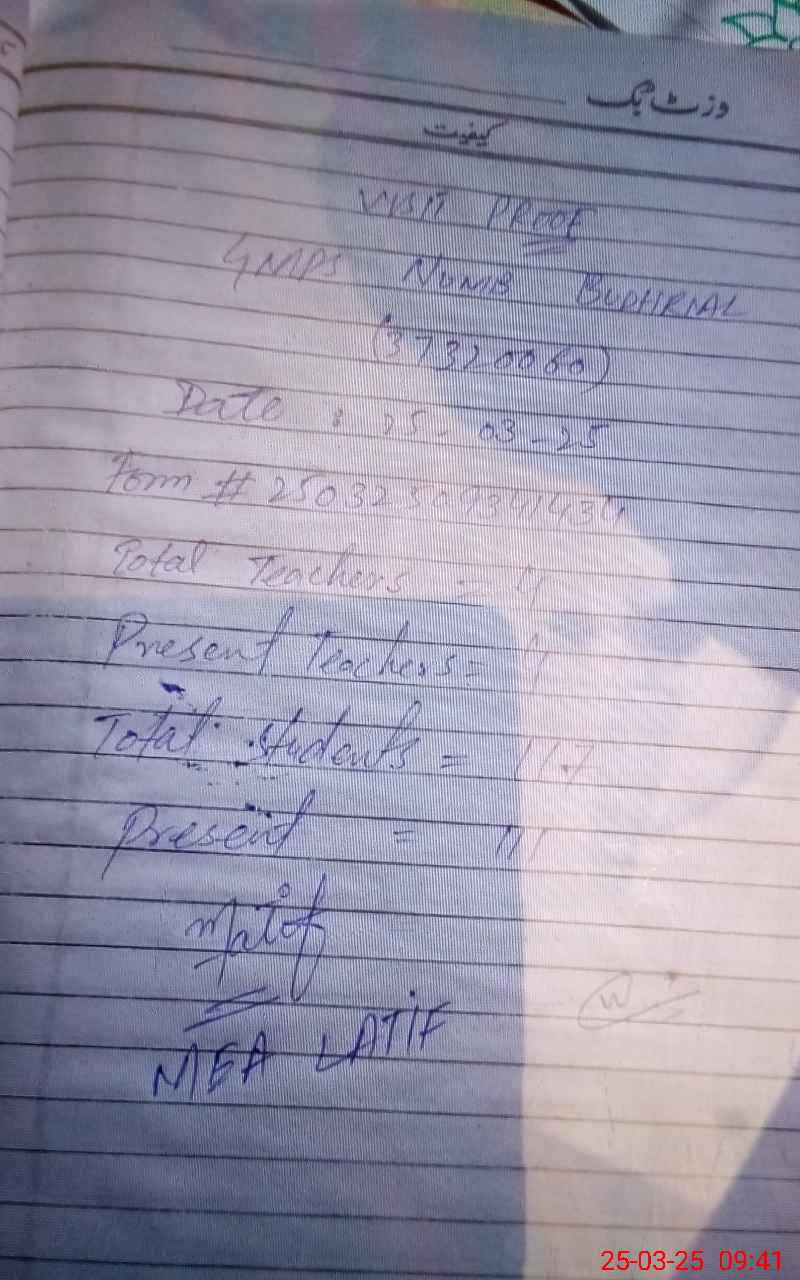 وزٹ بک
کیفیت
VISIT PROOF
GMPS NUMB BUDHRIAL
(37320060)
Date : 25-03-25
Form # 25032509341434
Total Teachers = 4
Present Teachers = 4
Total students = 117
Present = 111
MEA LATIF
25-03-25 09:41